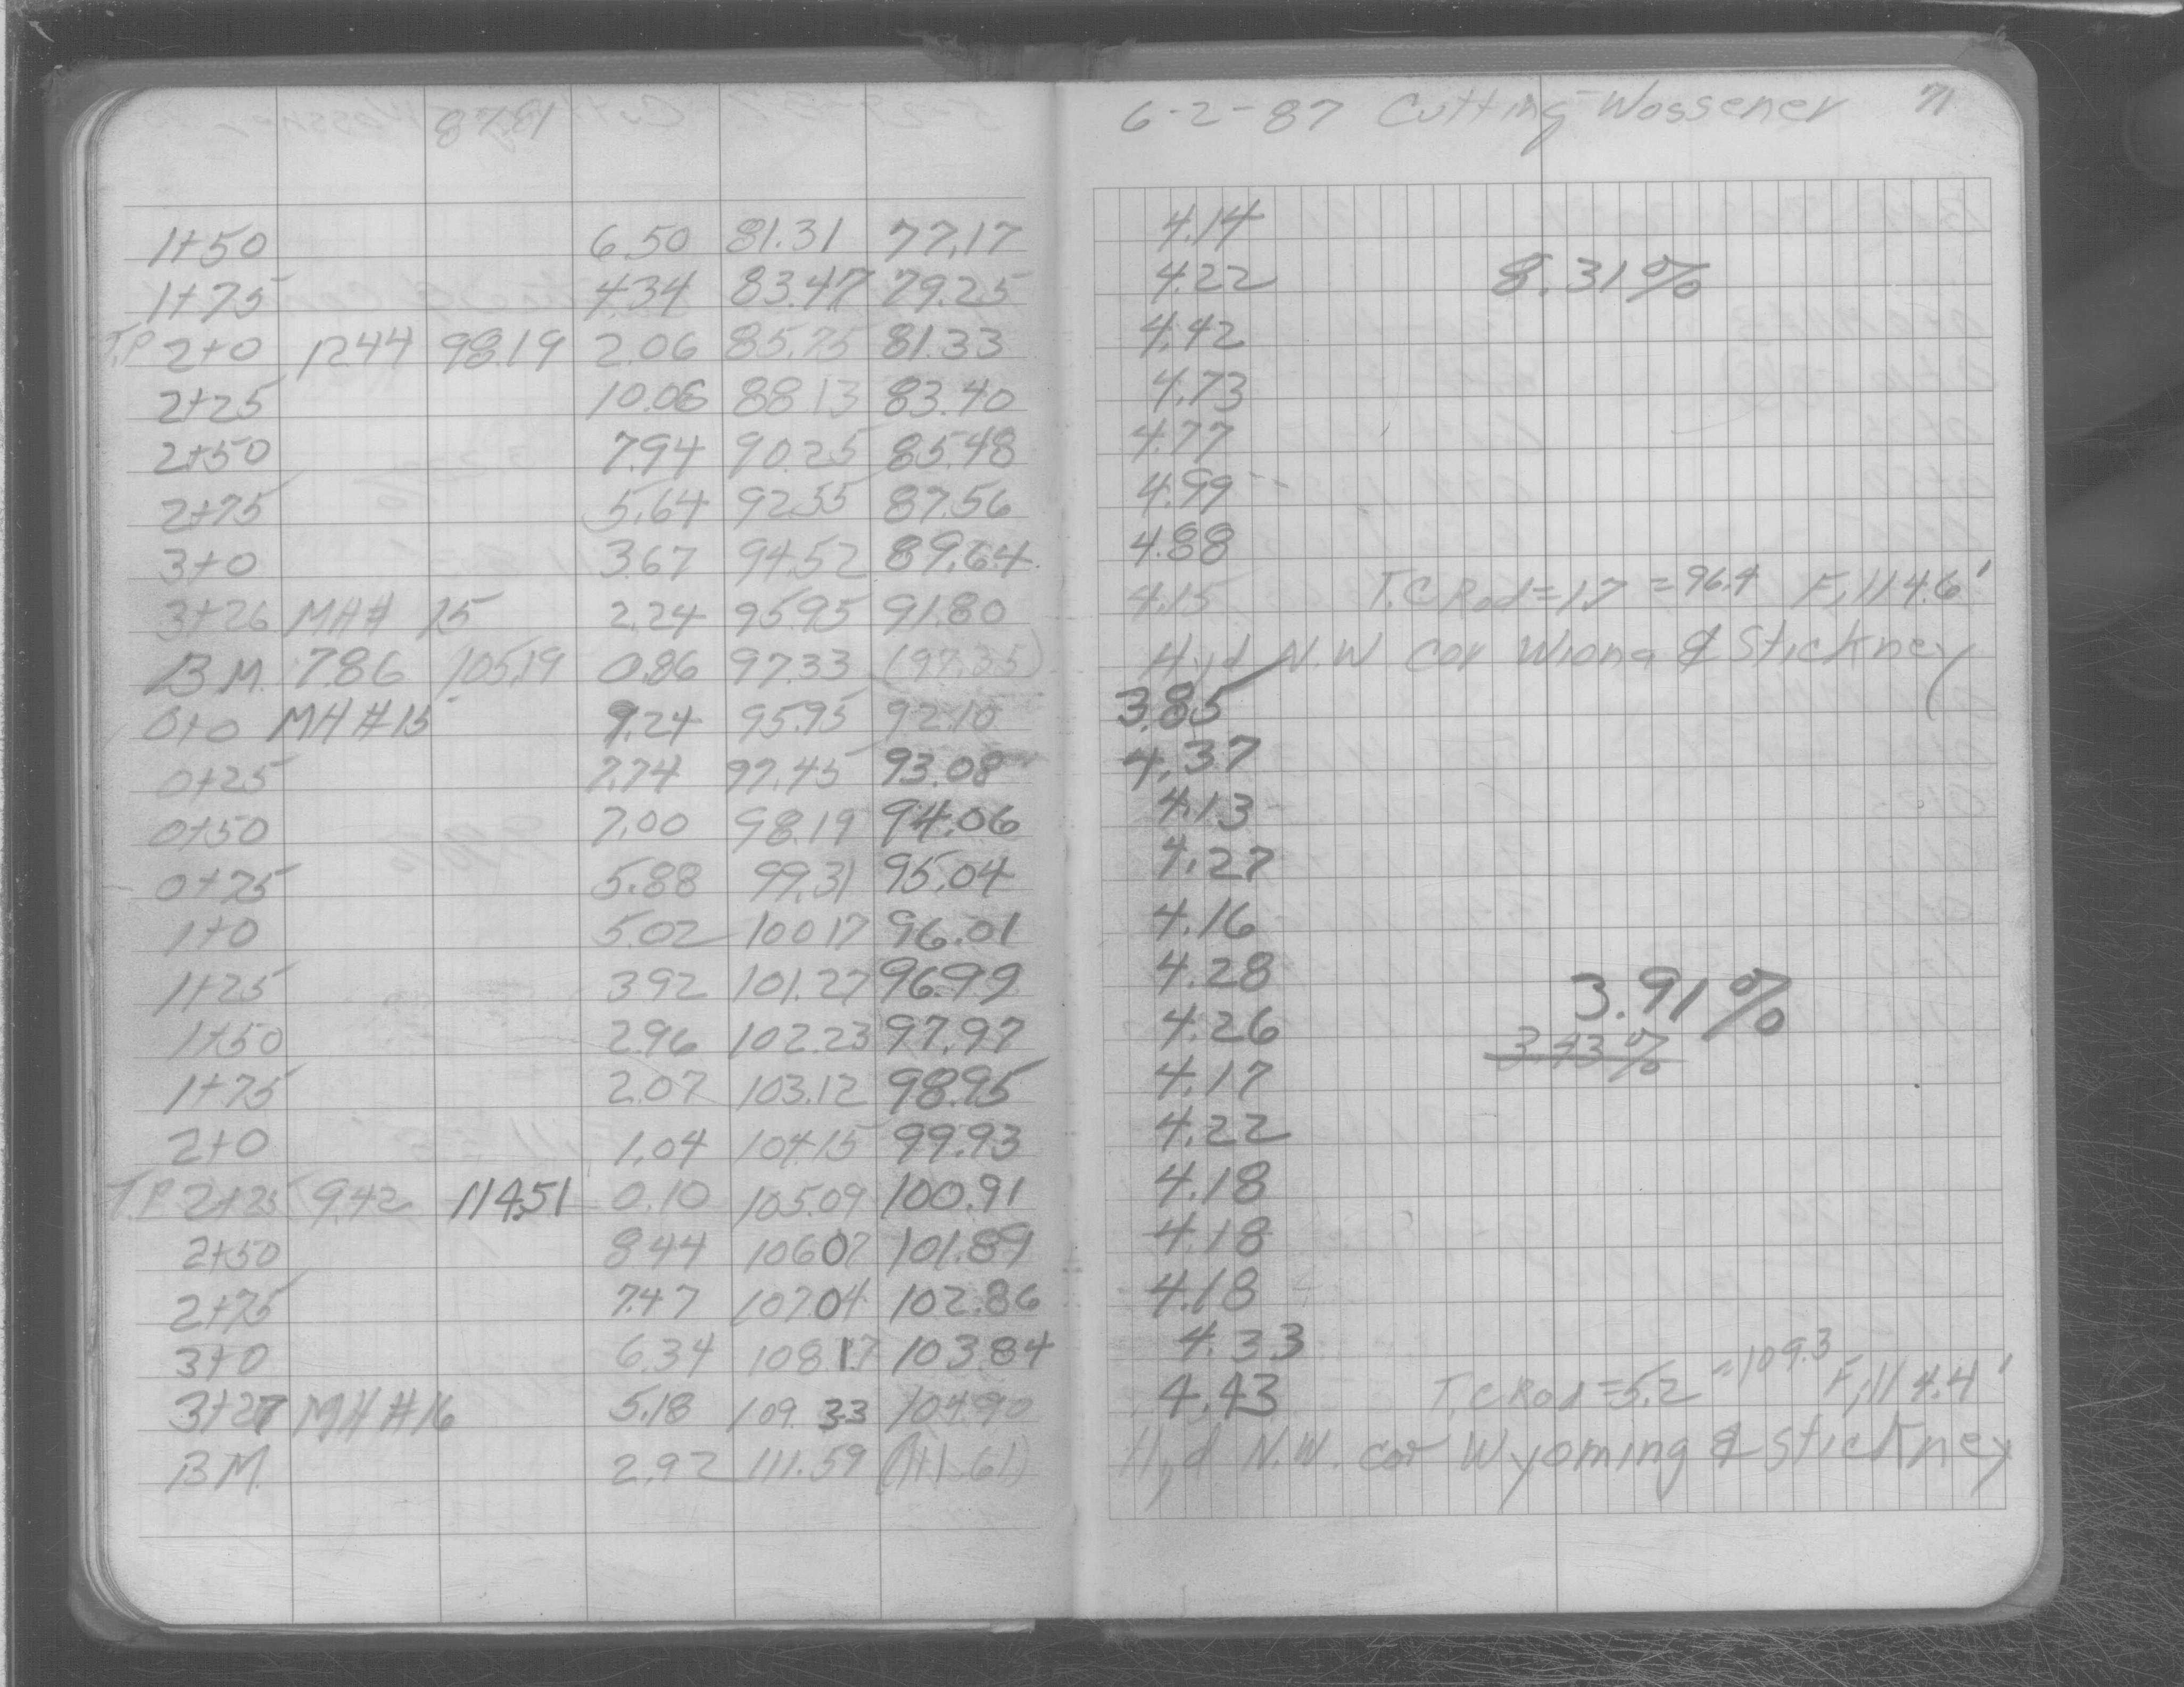 87.81
1+50 6.50 81.31 77.17
1+75 4.34 83.47 79.25
T.P 2+0 12.44 98.19 2.06 85.75 81.33
2+25 10.06 88.13 83.40
2+50 7.94 90.25 85.48
2+75 5.64 92.55 87.56
3+0 3.67 94.52 89.64
3+26 MH# 15 2.24 95.95 91.80
B.M. 7.86 105.19 0.86 97.33 (97.35)
0+0 MH #15 9.24 95.95 92.10
0+25 7.74 97.45 93.08
0+50 7.00 98.19 94.06
0+75 5.88 99.31 95.04
1+0 5.02 100.17 96.01
1+25 3.92 101.27 96.99
1+50 2.96 102.23 97.97
1+75 2.07 103.12 98.95
2+0 1.04 104.15 99.93
T.P 2+25 9.42 114.51 0.10 105.09 100.91
2+50 8.44 106.07 101.89
2+75 7.47 107.04 102.86
3+0 6.34 108.17 103.84
3+27 MH #16 5.18 109.33 104.90
B.M. 2.92 111.59 (111.61)
6-2-87 Cutting Wossener 71
4.14
4.22 8.31%
4.42
4.73
4.77
4.99
4.88
4.15 T.C Rod=1.7 =96.4 Fill 4.6'
Hyd N.W. cor Wiona & Stickney
3.85
4.37
4.13
4.27
4.16
4.28 3.91%
4.26 3.43%
4.17
4.22
4.18
4.18
4.18
4.33
4.43 T.C Rod=5.2 =109.3 Fill 4.4'
Hyd N.W. cor Wyoming & Stickney